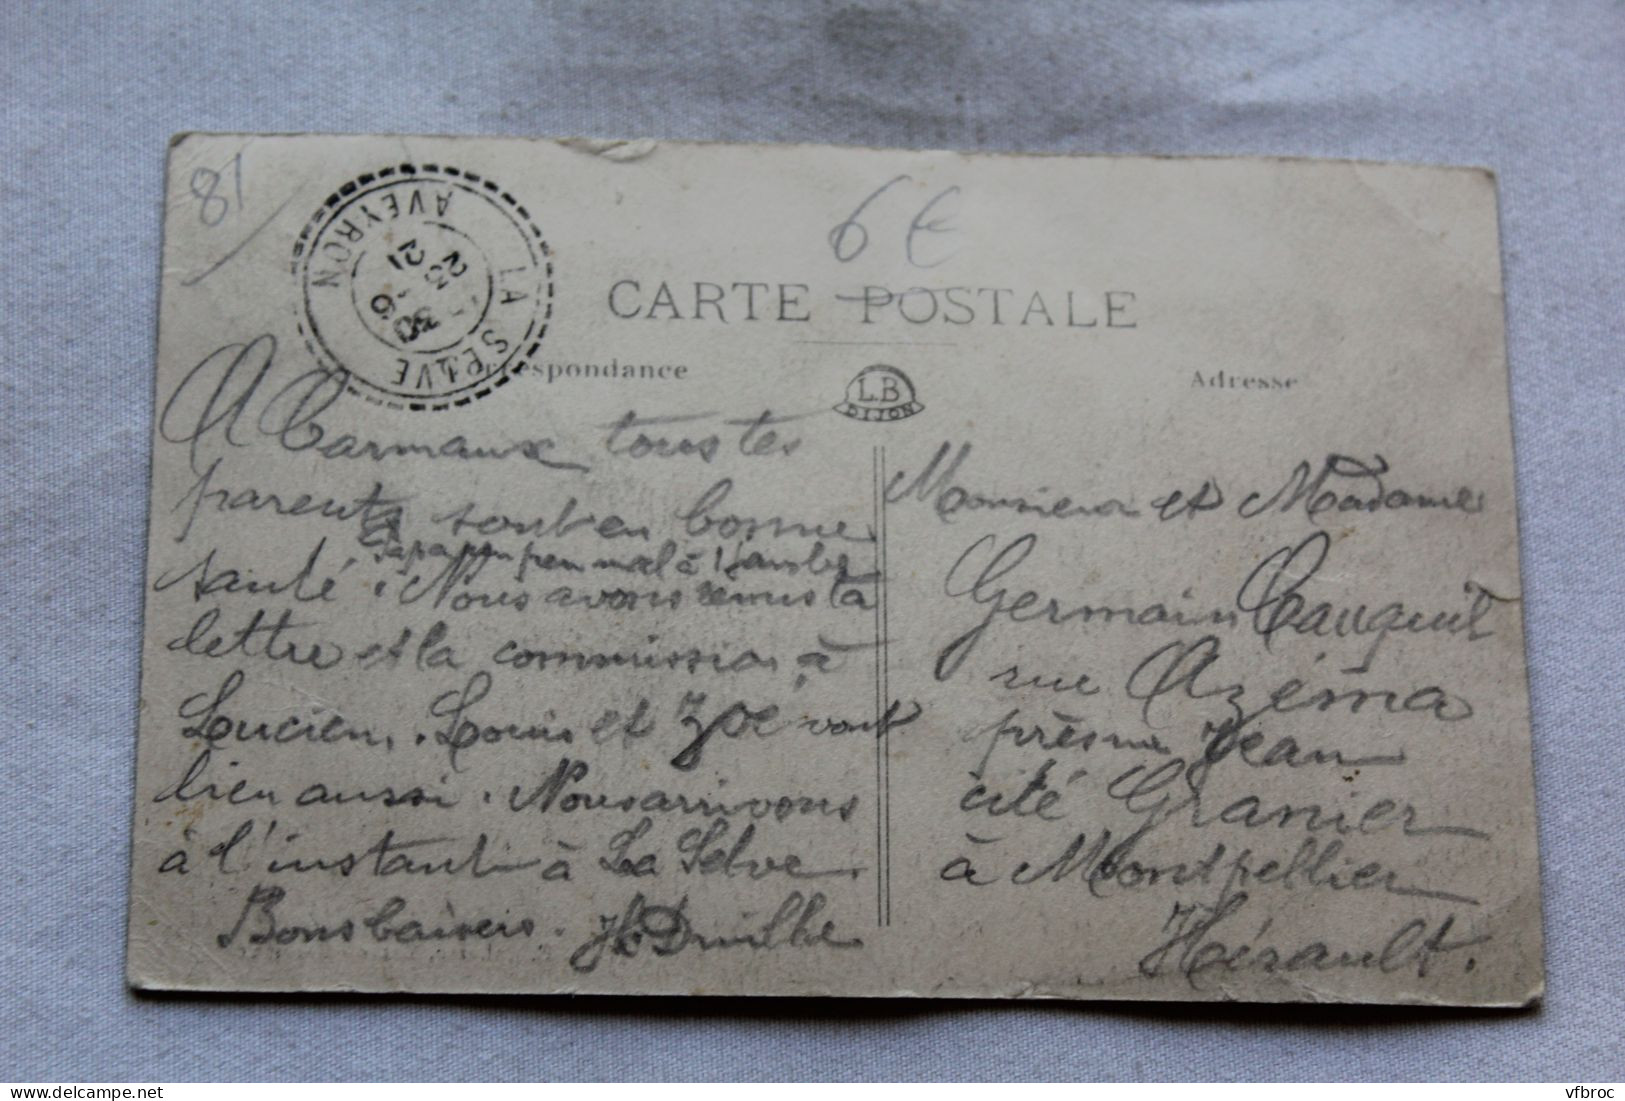 81
6€
LA SELVE
AVEYRON
CARTE POSTALE
Correspondance
L.B
DIJON
Adresse
A Carmaux tous tes
parents sont en bonne
Papa un peu mal à 1 jambe
santé. Nous avons remis ta
lettre et la commission à
Lucien. Louis et Zoé vont
bien aussi. Nous arrivons
à l'instant à La Selve.
Bons baisers.
Monsieur et Madame
Germain Cauquil
rue Azéma
près rue Jean
cité Granier
à Montpellier
Hérault.
vfbroc